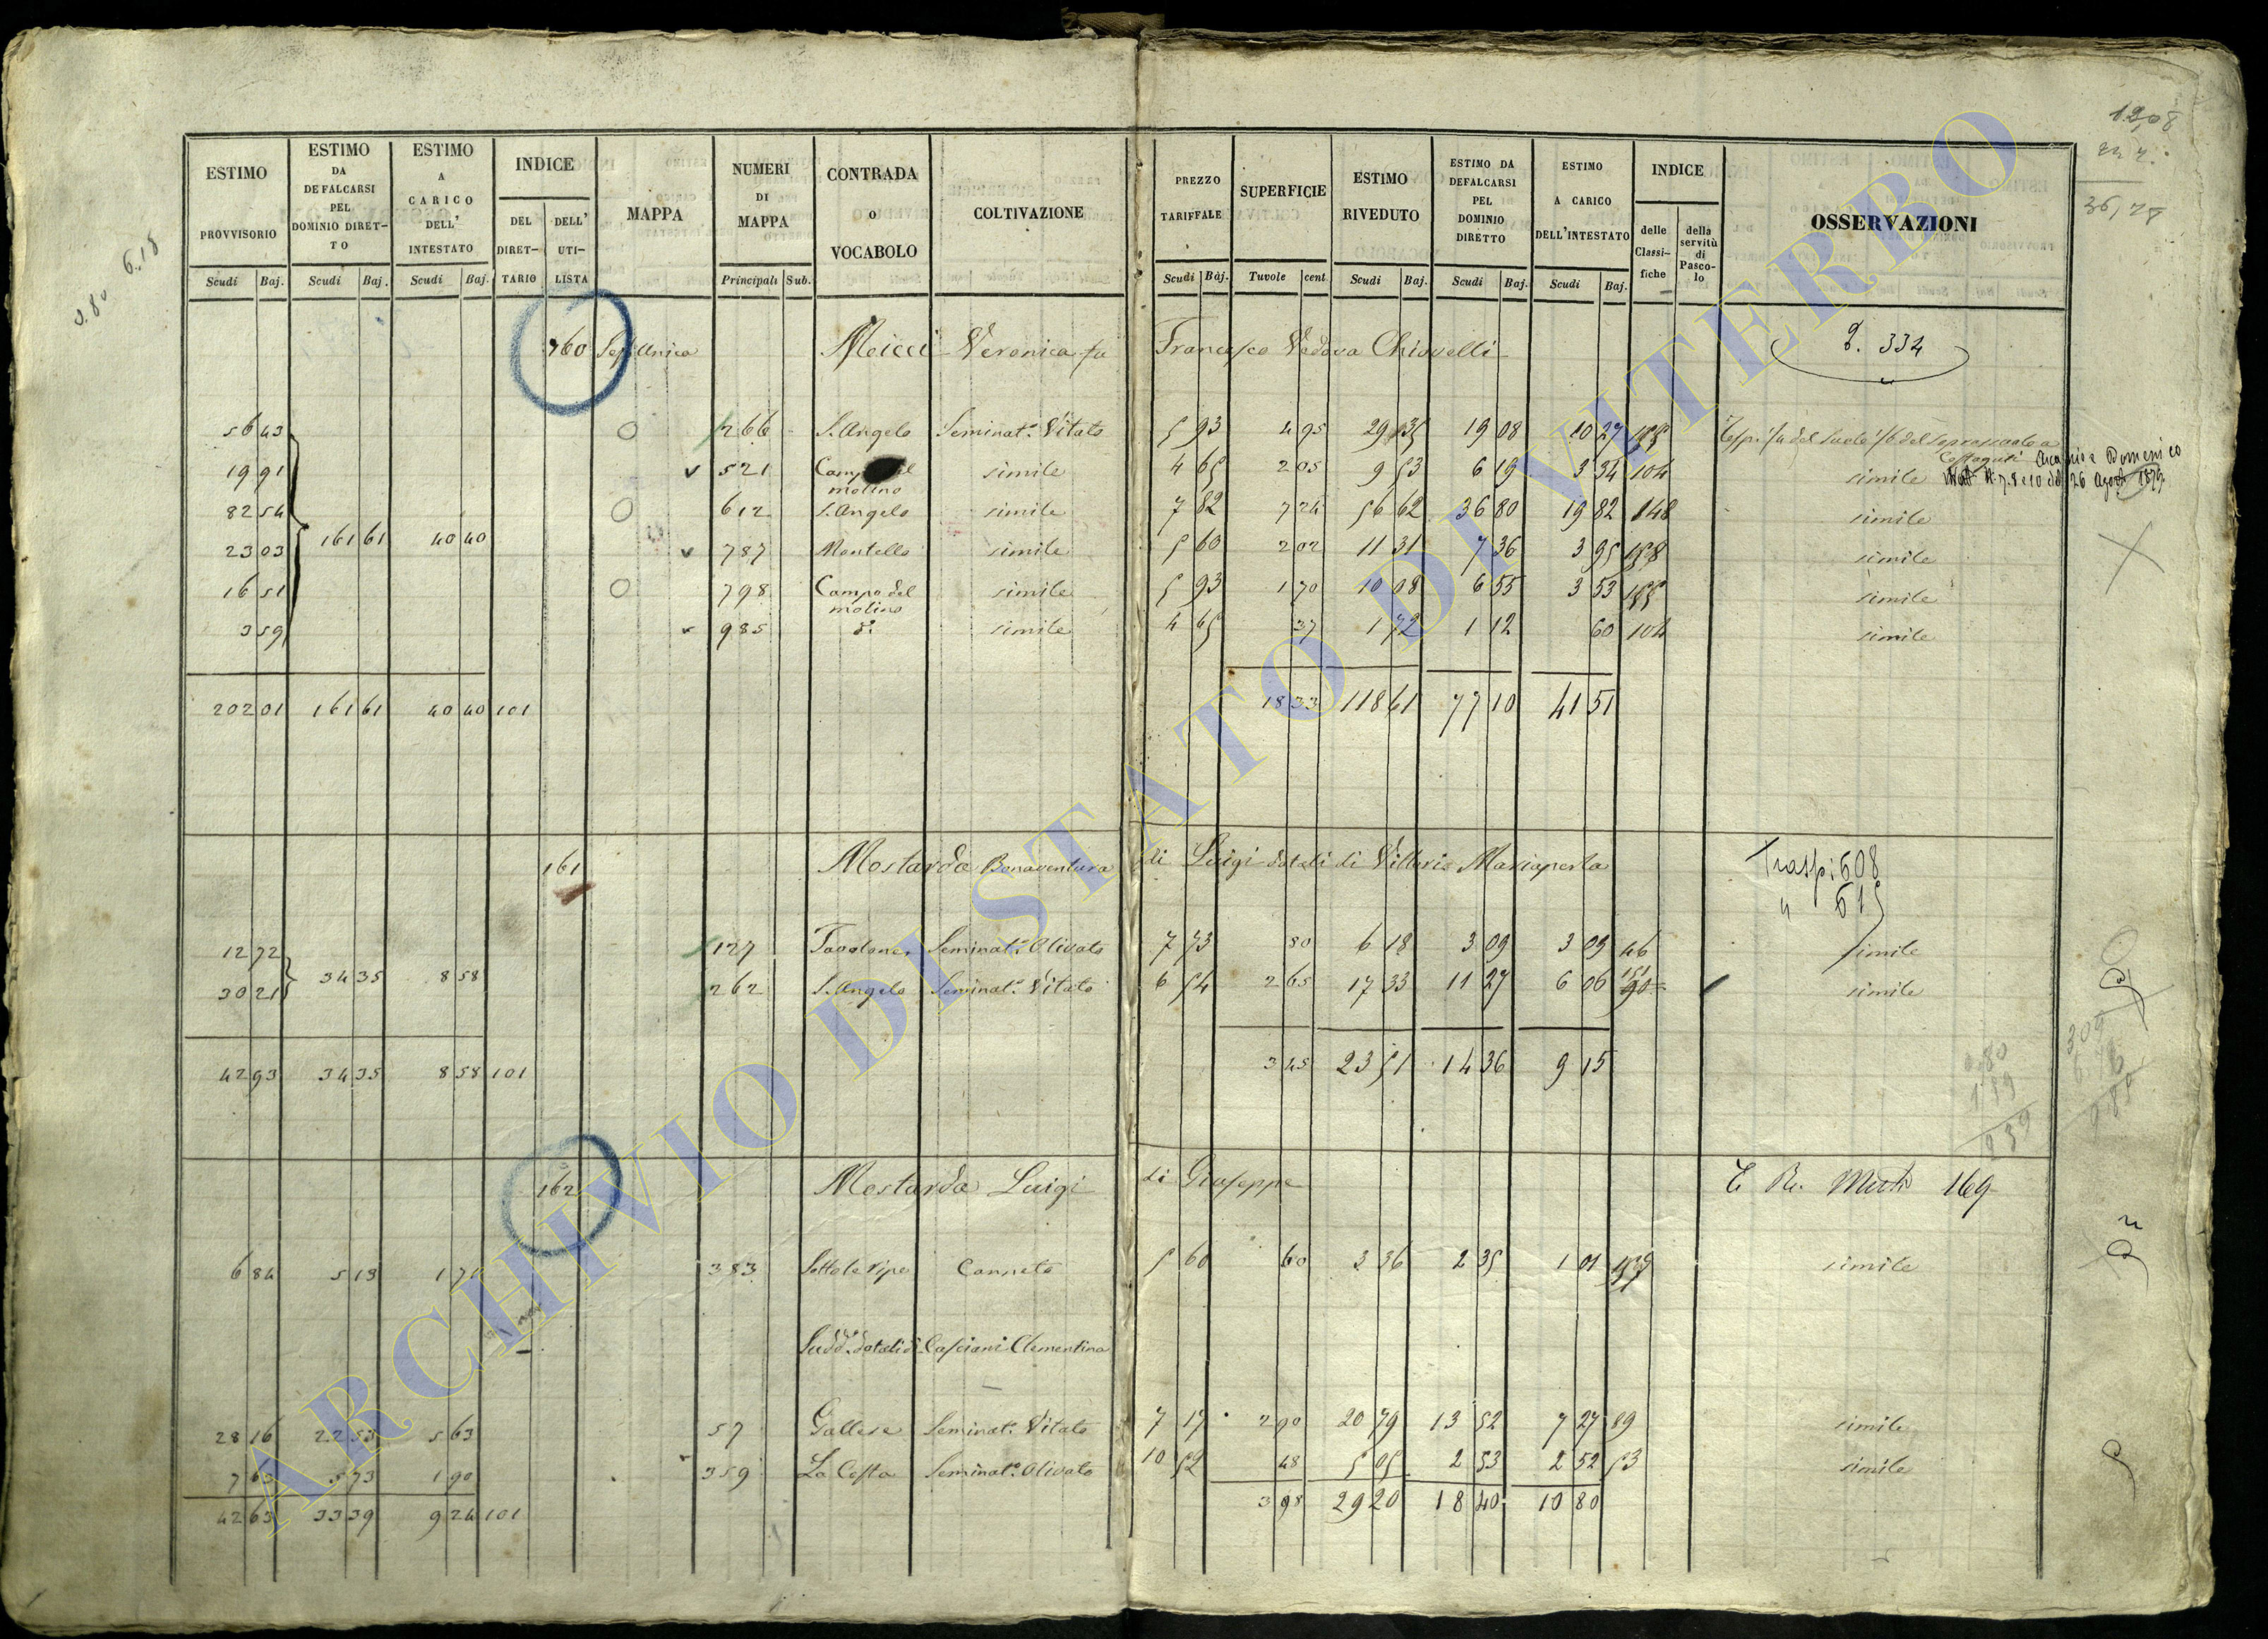 ESTIMO PROVVISORIO Scudi Baj.
ESTIMO DA DEFALCARSI PEL DOMINIO DIRET-TO Scudi Baj.
ESTIMO A CARICO DELL' INTESTATO Scudi Baj.
INDICE DEL DIRET-TARIO DELL' UTI-LISTA
MAPPA
NUMERI DI MAPPA Principali Sub.
CONTRADA O VOCABOLO
COLTIVAZIONE
PREZZO TARIFFALE Scudi Baj.
SUPERFICIE Tavole cent.
ESTIMO RIVEDUTO Scudi Baj.
ESTIMO DA DEFALCARSI PEL DOMINIO DIRETTO Scudi Baj.
ESTIMO A CARICO DELL'INTESTATO Scudi Baj.
INDICE delle Classi-fiche della servitù di Pasco-lo
OSSERVAZIONI
6.18
36,28
160 Sez. Unica Meicci Veronica fu Francesco Vedova Chiovelli 334
56 43 266 S. Angelo Seminat.º Vitato 5 93 4 95 29 35 19 08 10 27
19 91 521 Campo del molino simile 4 65 2 05 9 53 6 19 3 34 104 simile
26 Agosto 1879
82 54 612 S. Angelo simile 7 82 7 24 56 62 36 80 19 82 148 simile
161 61 40 40
23 03 787 Montello simile 5 60 2 02 11 31 7 36 3 95 simile
16 51 798 Campo del molino simile 5 93 1 70 10 08 6 55 3 53 simile
3 59 985 d.º simile 4 65 37 1 72 1 12 60 104 simile
202 01 161 61 40 40 101 18 33 118 61 77 10 41 51
161 Mostarda Bonaventura di Luigi dotali di Vittoria Mariaperla
608
615
12 72 127 Seminat.º Olivato 7 73 80 6 18 3 09 3 09 46 simile
34 35 8 58
30 21 262 S. Angelo Seminat.º Vitato 6 54 2 65 17 33 11 27 6 06 151 simile
42 93 34 35 8 58 101 3 45 23 51 14 36 9 15
162 Mostarda Luigi di Giuseppe 169
6 84 5 13 1 71 383 Sotto le ripe Canneto 5 60 60 3 36 2 35 1 01 simile
Sudd.º dotali di Casciani Clementina
28 16 22 53 5 63 57 Gallese Seminat.º Vitato 7 17 2 90 20 79 13 52 7 27 89 simile
7 63 5 73 1 90 359 La Costa Seminat.º Olivato 10 52 48 5 05 2 53 2 52 53 simile
42 63 33 39 9 24 101 3 98 29 20 18 40 10 80
ARCHIVIO DI STATO DI VITERBO